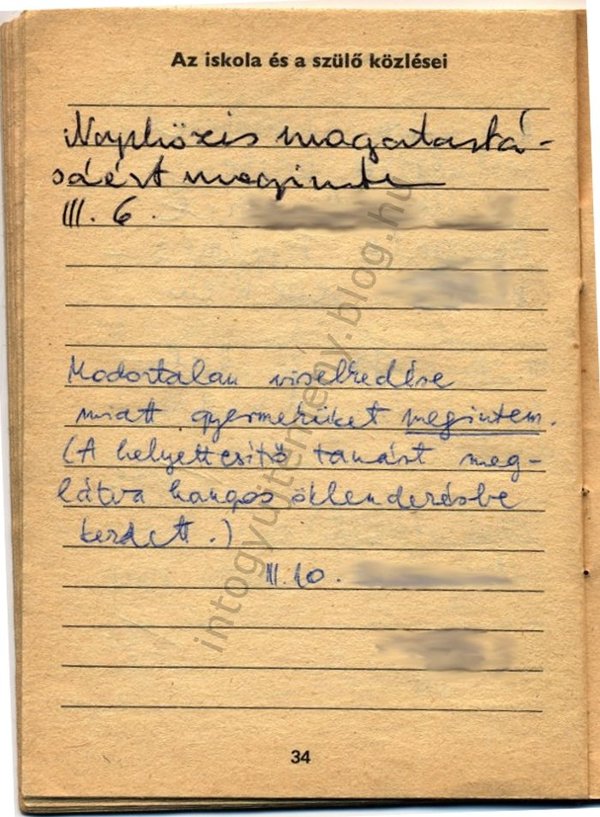 Az iskola és a szülő közlései
Napközis magatartá-
sáért megintem
III. 6.
Modortalan viselkedése
miatt gyermeküket megintem.
(A helyettesítő tanárt meg-
látva hangos öklendezésbe
kezdett.)
III. 10.
intogyujtemeny.blog.hu
34